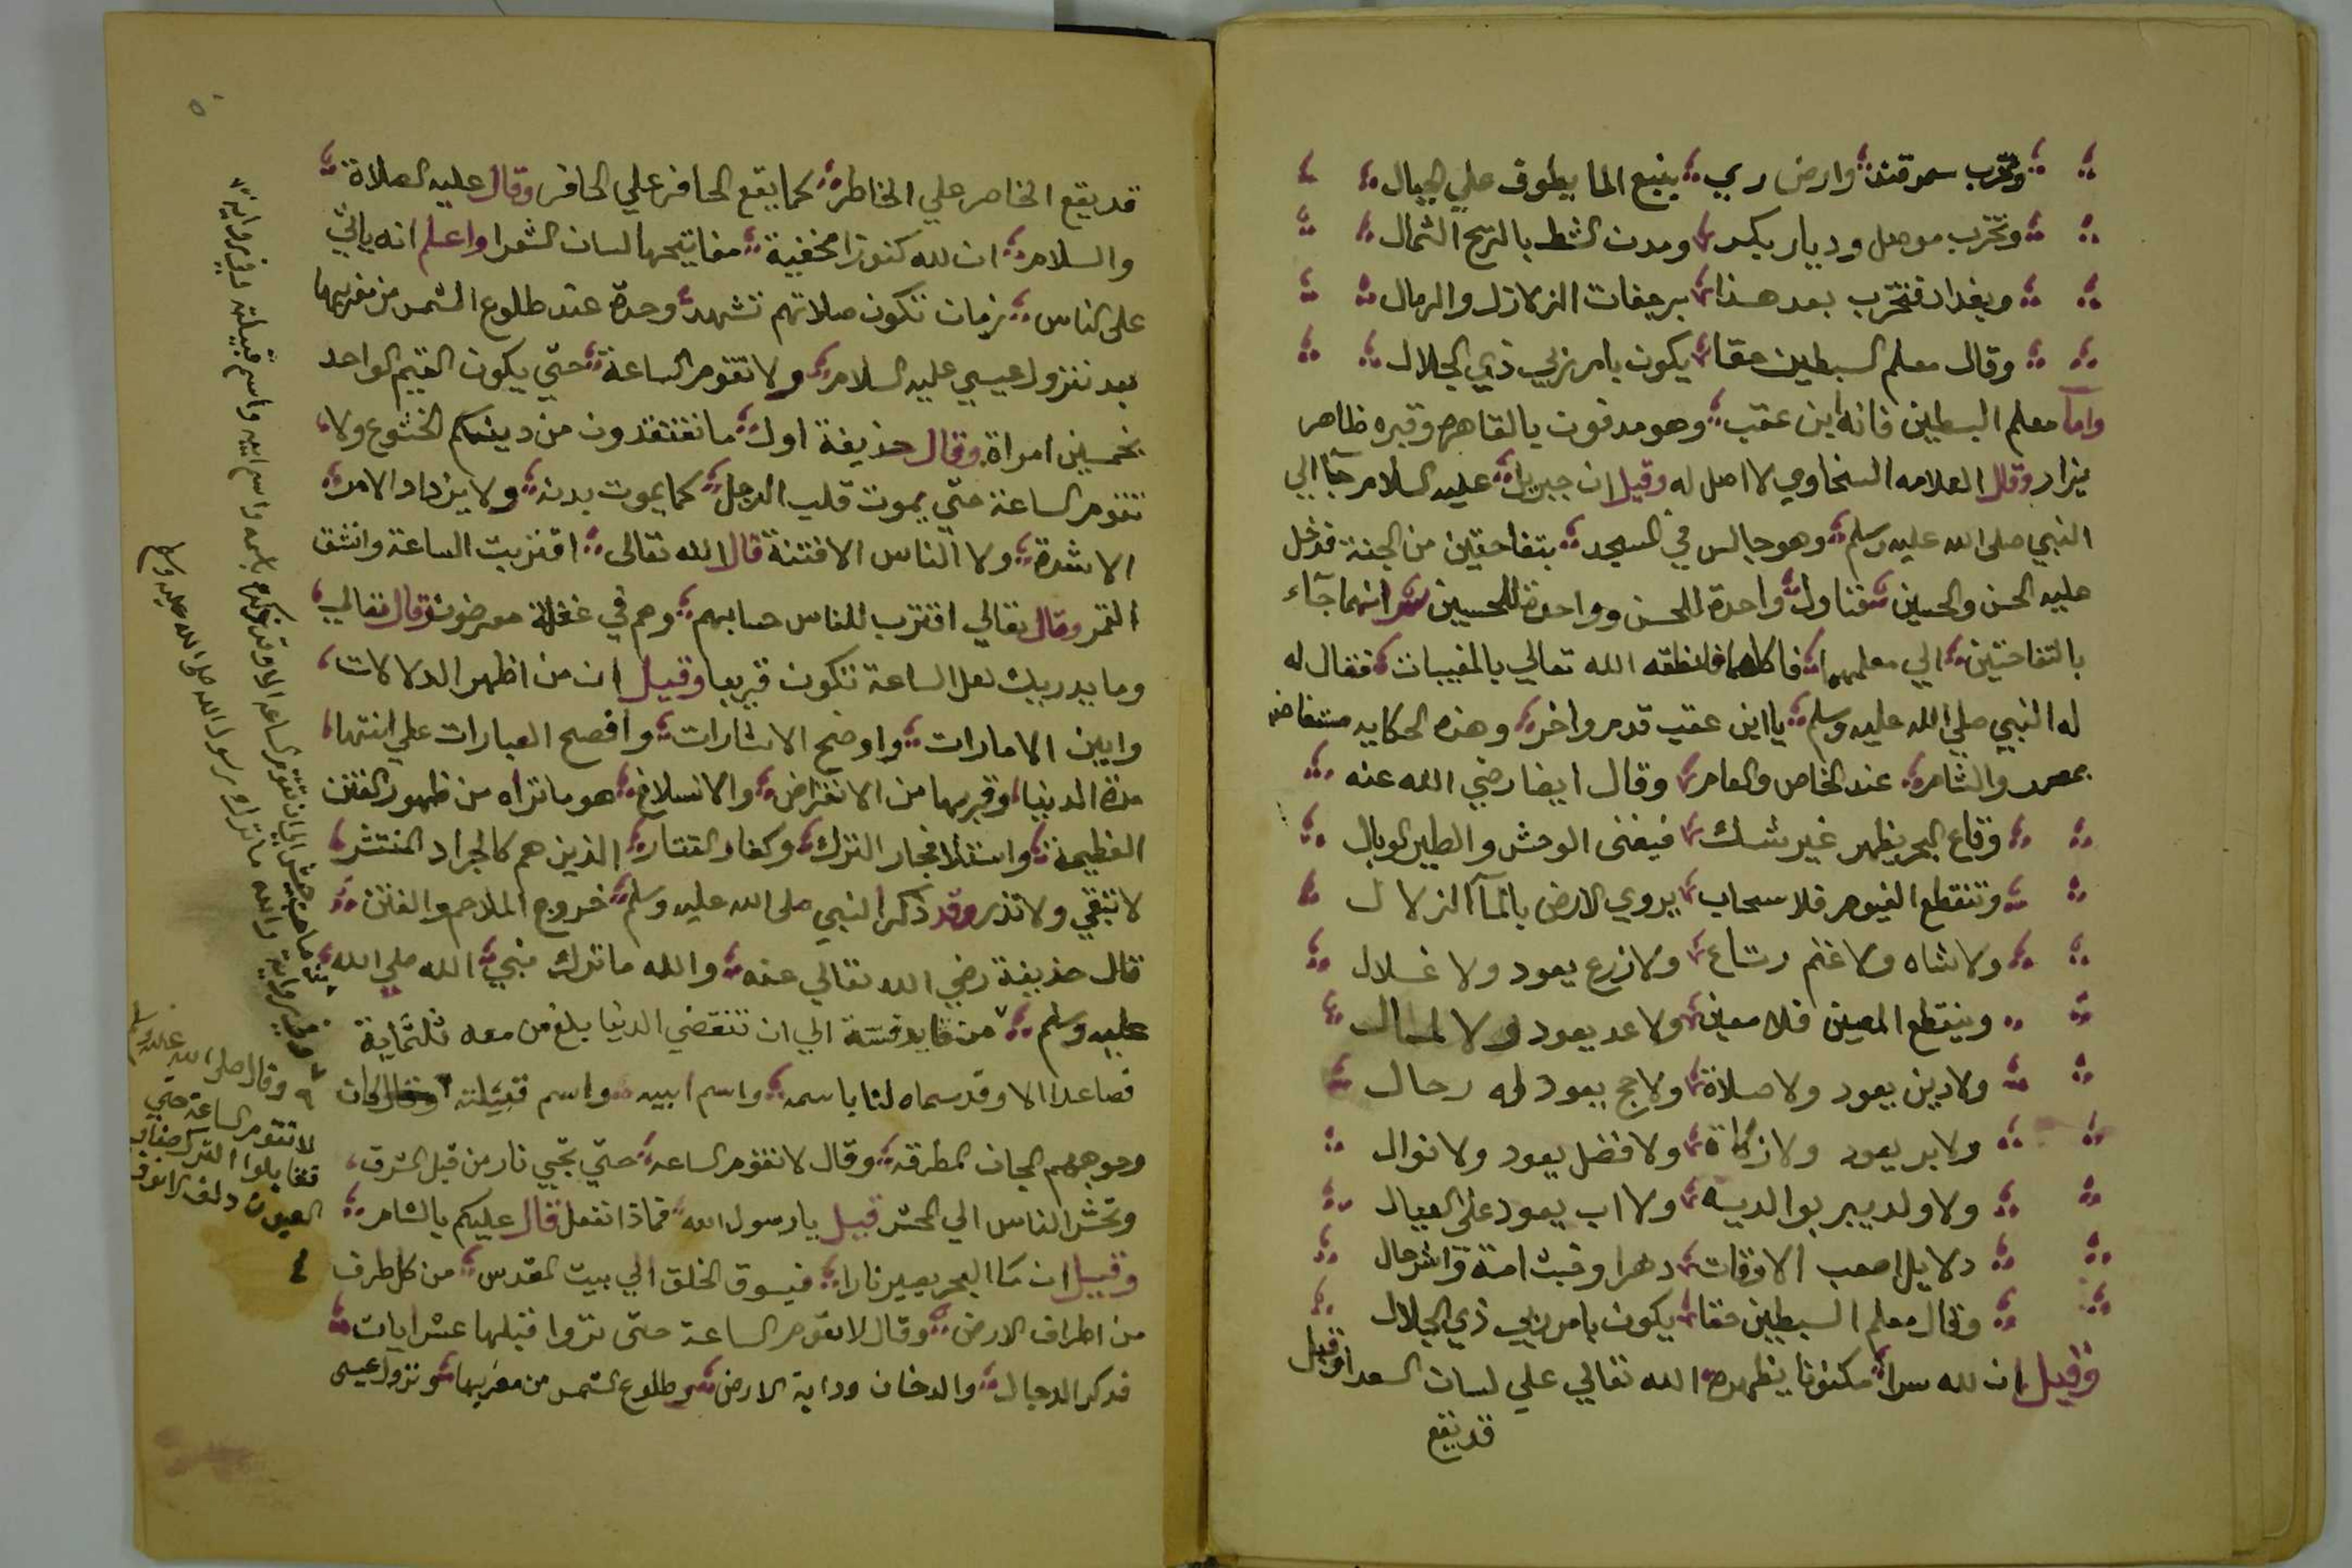 وتخرب سمرقند وارض ري ينبع الما يطوف علي الجبال
وتخرب موصل وديار بكر ومدن الشط بالريح الشمال
وبغداد فتخرب بعد هذا برجفات الزلازل والرمال
وقال معلم السبطين حقا يكون بامر ربي ذي الجلال
واما معلم السبطين فانه ابن عقب وهو مدفون بالقاهره وقبره ظاهر
يزار وقال العلامه السخاوي لا اصل له وقيل ان جبريل عليه السلام جآ الي
النبي صلى الله عليه وسلم وهو جالس في المسجد بتفاحتين من الجنة فدخل
عليه الحسن والحسين فناول واحدة للحسن وواحدة للحسين ثم انهما جآء
بالتفاحتين الي معلمهما فاكلهما فانطقه الله تعالي بالمغيبات فقال له
له النبي صلي الله عليه وسلم يا ابن عقب قدم واخر وهذه الحكايه مستفاضه
بمصر والشام عند الخاص والعام وقال ايضا رضي الله عنه
وقاع البحر يظهر غير شك فيفنى الوحش والطير الوبال
وتنقطع الغيوم فلا سحاب يروي الارض بالمآ الزلال
ولا شاه ولا غنم رتاع ولا زرع يعود ولا غلال
وينقطع المعين فلا معين ولا عد يعود ولا
ولا دين يعود ولا صلاة ولا حج يعود له رحال
ولا بر يعود ولا زكاة ولا فضل يعود ولا نوال
ولا ولد يبر بوالديه ولا اب يعود على العيال
دلايل اصعب الاوقات دهرا وخبث امة واشر حال
وقال معلم السبطين حقا يكون بامر ربي ذي الجلال
وقيل ان لله سرا مكنونا يظهره الله تعالي علي لسان السعدا وقيل
قد يقع
قد يقع الخاطر علي الخاطر كما يقع الحافر علي الحافر وقال عليه الصلاة
والسلام ان لله كنوزا مخفية مفاتيحها لسان الشعرا واعلم انه ياتي
على الناس زمان تكون صلاتهم تشهد وحدة عند طلوع الشمس من مغربها
بعد نزول عيسي عليه السلام ولا تقوم الساعة حتي يكون القيم الواحد
بخمسين امراة وقال حذيفة اول ما تفتقدون من دينكم الخشوع ولا
تقوم الساعة حتي يموت قلب الرجل كما يموت بدنه ولا يزداد الامر
الا شدة ولا الناس الا فتنة قال الله تعالى اقتربت الساعة وانشق
القمر وقال تعالي اقترب للناس حسابهم وهم في غفلة معرضون وقال تعالي
وما يدريك لعل الساعة تكون قريبا وقيل ان من اظهر الدلالات
وابين الامارات واوضح الاشارات وافصح العبارات علي انتها
مدة الدنيا وقربها من الانقراض والانسلاخ هو ما تراه من ظهور الفتن
العظيمة واستلا فجار الترك وكفار التتار الذين هم كالجراد المنتشر
لا تبقي ولا تذر وقد ذكر النبي صلى الله عليه وسلم خروج الملاحم والفتن
قال حذيفة رضي الله تعالي عنه والله ما ترك نبي الله صلي الله
عليه وسلم من قايد فتنة الي ان تنقضي الدنيا بلغ من معه ثلثماية
فصاعدا الا وقد سماه لنا باسمه واسم ابيه واسم قبيلته كان
وجوههم المجان المطرقه وقال لا تقوم الساعه حتي تجي نار من قبل المشرق
وتحشر الناس الي المحشر قيل يا رسول الله فماذا نفعل قال عليكم بالشام
وقيل ان مآ البحر يصير نارا فيسوق الخلق الي بيت المقدس من كل طرف
من اطراف الارض وقال لا تقوم الساعة حتى تروا قبلها عشر ايات
فذكر الدجال والدخان ودابة الارض وطلوع الشمس من مغربها ونزول عيسى
وفي رواية والله ما ترك رسول الله صلى الله عليه وسلم
الي ان تقوم الساعه الا وقد ذكره باسمه واسم ابيه واسم قبيلته
وقال صلى الله عليه وسلم
لا تقوم الساعة حتي
تقاتلوا الترك صغار
العيون دلف الانوف